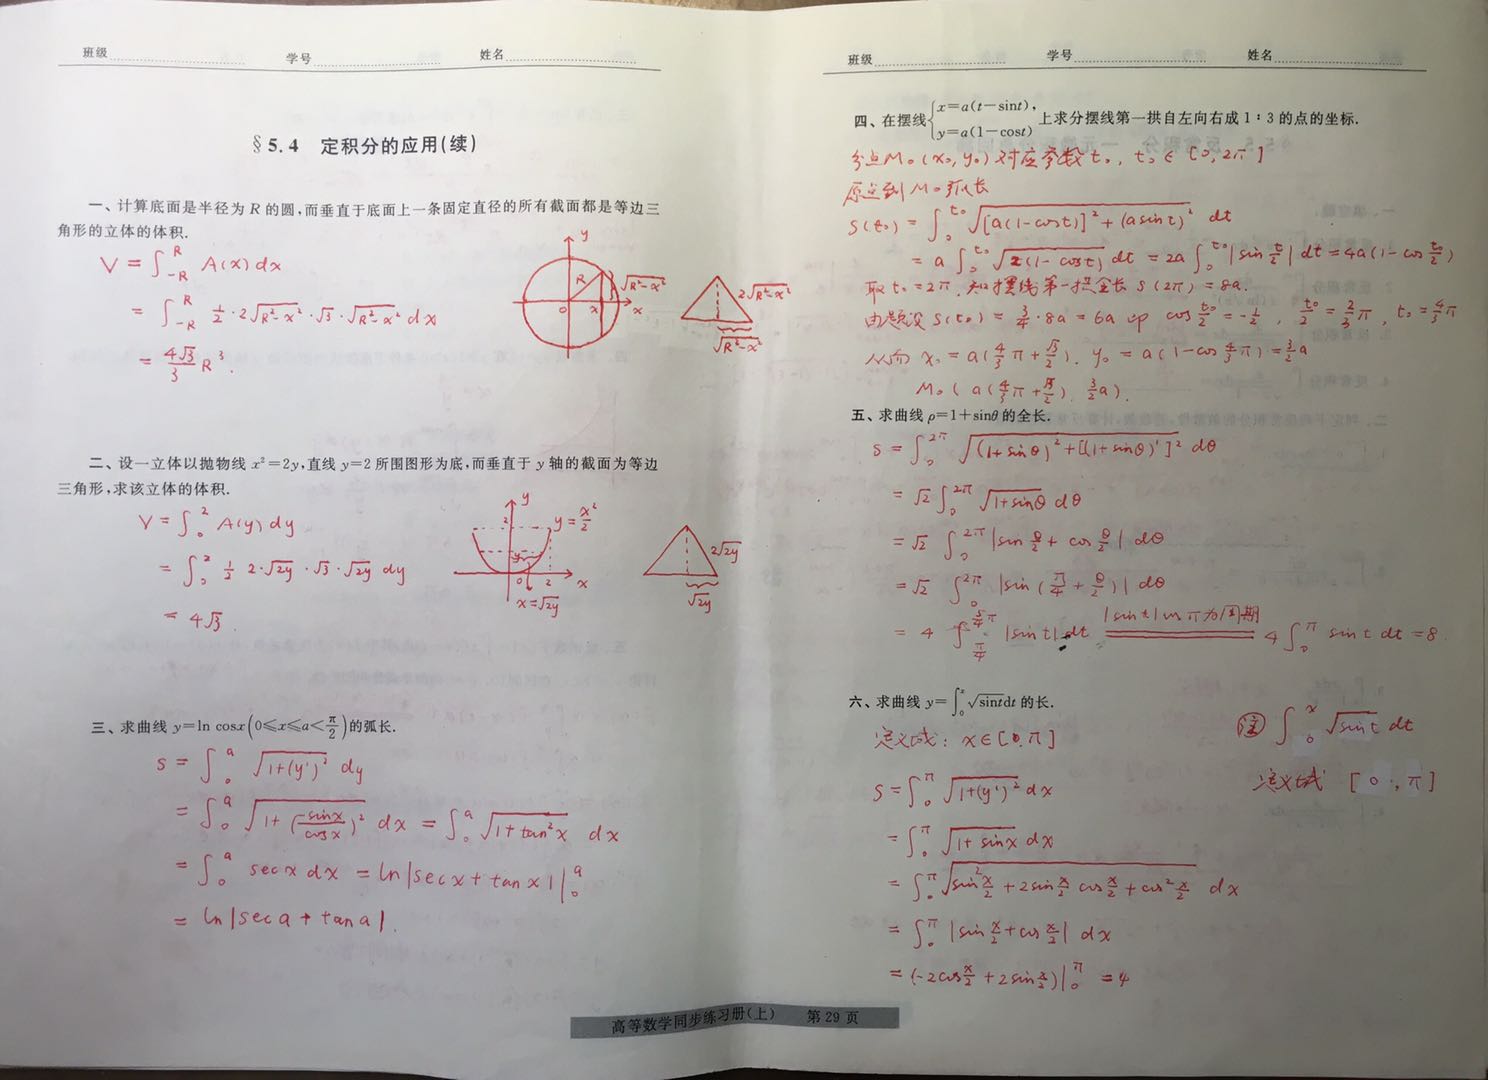 班级 学号 姓名
§5.4 定积分的应用(续)
一、计算底面是半径为 R 的圆,而垂直于底面上一条固定直径的所有截面都是等边三
角形的立体的体积.
V = ∫_{-R}^{R} A(x) dx
= ∫_{-R}^{R} 1/2 · 2√(R²-x²) · √3 · √(R²-x²) dx
= 4√3/3 R³.
y
R
√(R²-x²)
o x x
2√(R²-x²)
√(R²-x²)
二、设一立体以抛物线 x²=2y,直线 y=2 所围图形为底,而垂直于 y 轴的截面为等边
三角形,求该立体的体积.
V = ∫_0^2 A(y) dy
= ∫_0^2 1/2 2·√2y · √3 · √2y dy
= 4√3.
y
2
y = x²/2
y
o 2 x
x=√2y
2√2y
√2y
三、求曲线 y=ln cosx(0≤x≤a<π/2)的弧长.
s = ∫_0^a √(1+(y')²) dy
= ∫_0^a √(1+(-sinx/cosx)²) dx = ∫_0^a √(1+tan²x) dx
= ∫_0^a secx dx = ln|secx+tanx| |_0^a
= ln|seca+tana|.
班级 学号 姓名
四、在摆线{x=a(t-sint), y=a(1-cost) 上求分摆线第一拱自左向右成 1:3 的点的坐标.
分点M₀(x₀,y₀)对应参数t₀, t₀∈[0,2π]
原点到M₀弧长
S(t₀) = ∫_0^{t₀} √([a(1-cost)]²+(asint)²) dt
= a∫_0^{t₀} √(2(1-cost)) dt = 2a∫_0^{t₀} |sin t/2| dt = 4a(1-cos t₀/2)
取 t₀=2π,知摆线第一拱全长 S(2π)=8a.
由题设 S(t₀) = 3/4·8a = 6a 即 cos t₀/2 = -1/2, t₀/2 = 2/3 π, t₀=4/3 π
从而 x₀ = a(4/3 π+√3/2). y₀ = a(1-cos 4/3 π)=3/2 a
M₀(a(4/3 π+√3/2), 3/2 a).
五、求曲线 ρ=1+sinθ 的全长.
s = ∫_0^{2π} √((1+sinθ)²+[(1+sinθ)']²) dθ
= √2 ∫_0^{2π} √(1+sinθ) dθ
= √2 ∫_0^{2π} |sin θ/2 + cos θ/2| dθ
= √2 ∫_0^{2π} |sin(π/4+θ/2)| dθ
= 4 ∫_{π/4}^{5/4 π} |sint| dt |sint|以π为周期 4∫_0^π sint dt = 8.
六、求曲线 y=∫_0^x √sint dt 的长.
定义域: x∈[0,π]
s = ∫_0^π √(1+(y')²) dx
= ∫_0^π √(1+sinx) dx
= ∫_0^π √(sin² x/2 + 2sin x/2 cos x/2 + cos² x/2) dx
= ∫_0^π |sin x/2 + cos x/2| dx
= (-2cos x/2 + 2sin x/2)|_0^π = 4
注 ∫_0^x √sint dt
定义域 [0,π]
高等数学同步练习册(上) 第 29 页